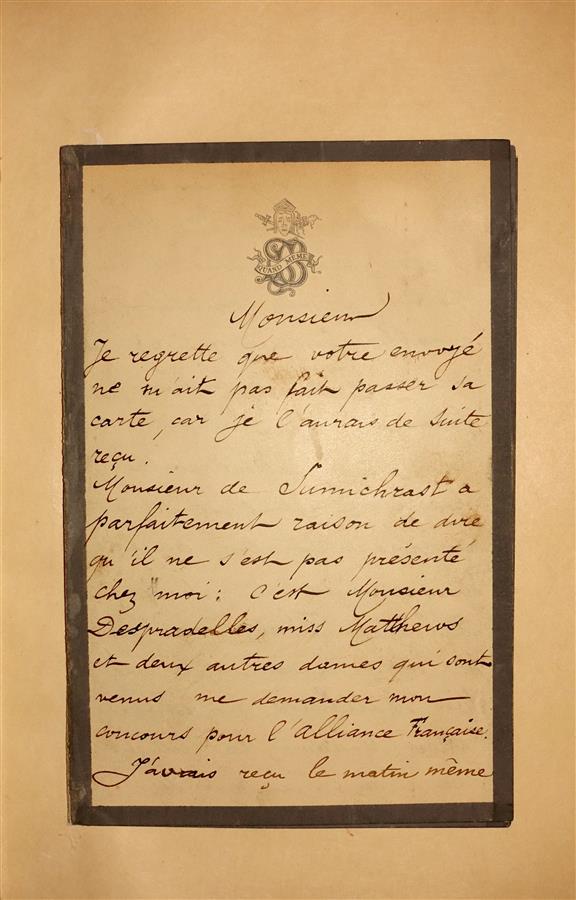 QUAND MEME
Monsieur
Je regrette que votre envoyé
ne m'ait pas fait passer sa
carte, car je l'aurais de suite
reçu.
Monsieur de Sumichrast a
parfaitement raison de dire
qu'il ne s'est pas présenté
chez moi : C'est Monsieur
Despradelles, miss Matthews
et deux autres dames qui sont
venus me demander mon
concours pour l'alliance Française.
J'avais reçu le matin même